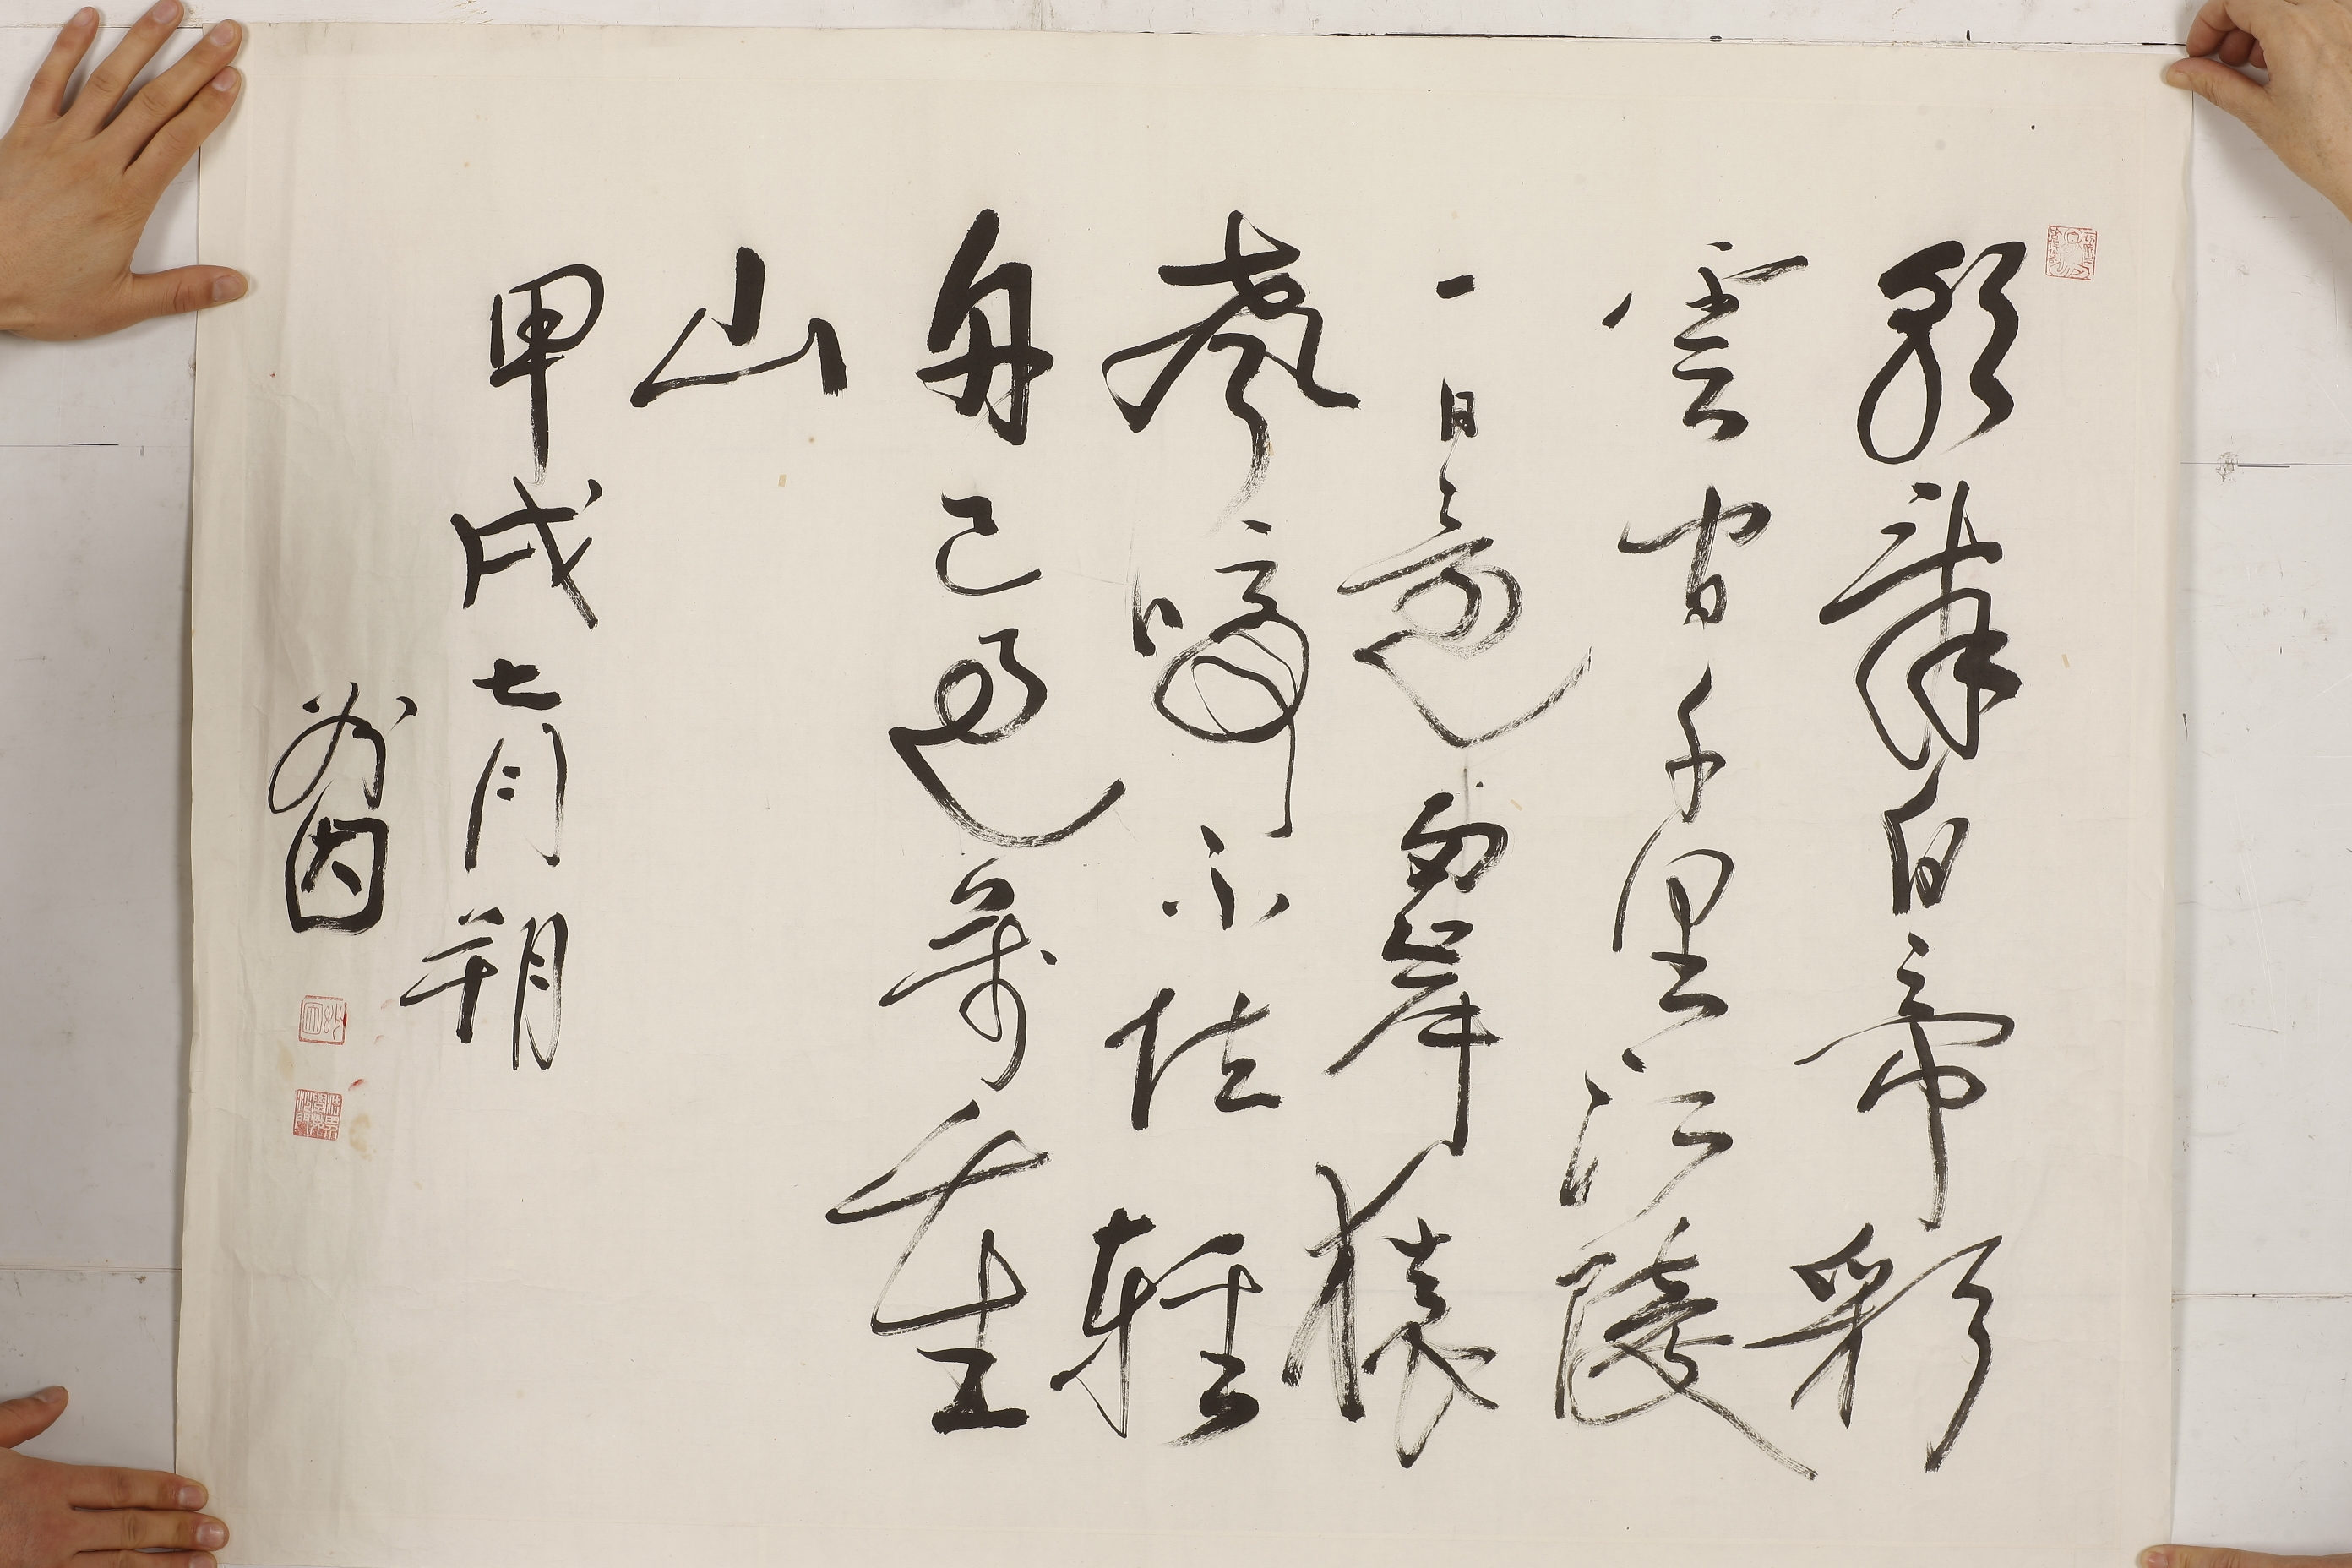 朝辭白帝彩
雲間千里江陵
一日還兩岸猿
聲啼不住輕
舟已過萬重
山
甲戌七月朔